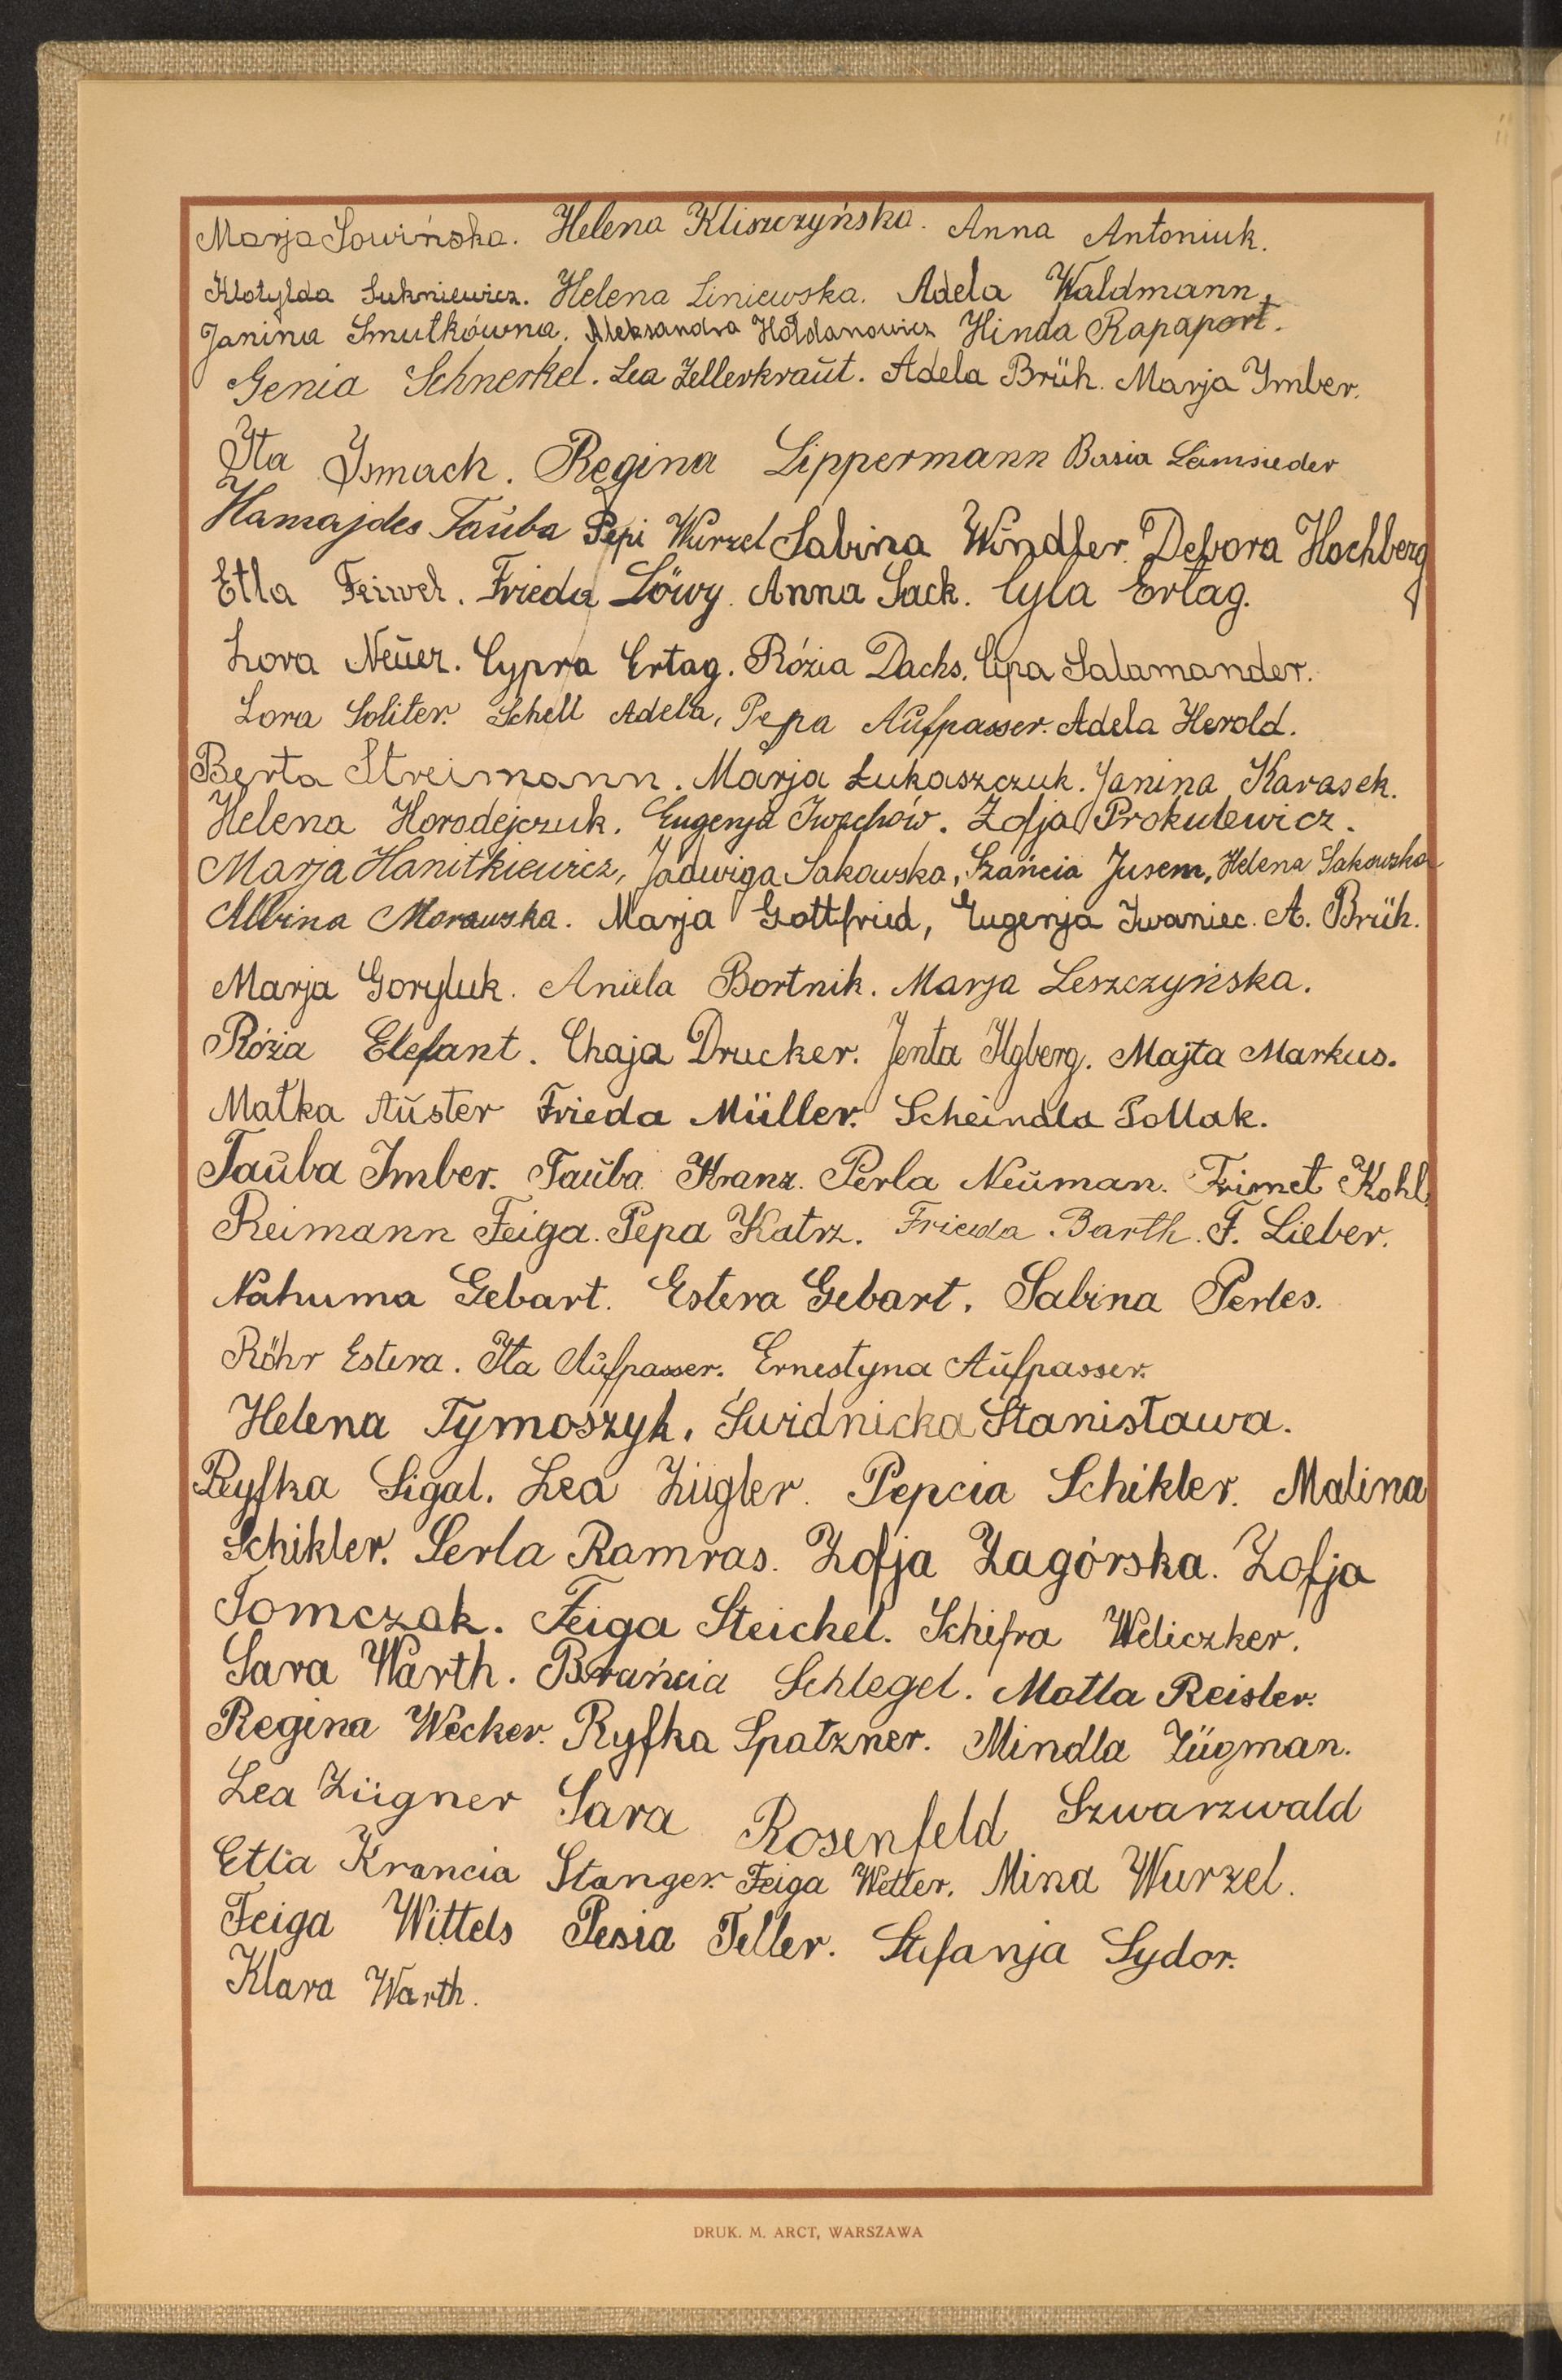 Marja Sowińska. Helena Kliszczyńska. Anna Antoniuk.
Klotylda Sukniewicz. Helena Liniewska. Adela Waldmann,
Janina Smutkówna. Aleksandra Hołdanowicz Hinda Rapaport.
Genia Schnerkel. Lea Zellerkraŭt. Adela Brüh. Marja Imber.
Ita Ismach. Regina Lippermann Basia Leimsieder
Hamajdes Taŭba Pepi Wurzel Sabina Windler. Debora Hochberg
Etla Feiwel. Frieda Löwy. Anna Sack. Cyla Ertag.
Lora Neŭer. Cypra Ertag. Rózia Dachs. Cipa Salamander.
Lora Soliter. Schell Adela, Pepa Aŭfpasser. Adela Herold.
Berta Streimann. Marja Łukaszczuk. Janina Karasek.
Helena Horodejczuk. Eugenja Iwachów. Zofja Prokulewicz.
Marja Hanitkiewicz, Jadwiga Sakowska, Szańcia Jusem, Helena Sakowska
Albina Morawska. Marja Gottfried, Eugenja Iwaniec. A. Brüh.
Marja Goryluk. Aniela Bortnik. Marja Leszczyńska.
Rózia Elefant. Chaja Drucker. Jenta Ilgberg. Majta Markus.
Matka Aŭster Frieda Müller. Scheindla Pollak.
Taŭba Imber. Taŭba Kranz. Perla Neŭman. Frimet Kohl.
Reimann Feiga. Pepa Katz. Frieda Barth. F. Lieber.
Nahuma Gebart. Estera Gebart. Sabina Perles.
Röhr Estera. Ita Aŭfpasser. Ernestyna Aŭfpasser.
Helena Tymoszyk. Świdnicka Stanisława.
Ryfka Sigal. Lea Zügler. Pepcia Schikler. Malina
Schikler. Serla Ramras. Zofja Zagórska. Zofja
Tomczak. Feiga Steickel. Schifra Weliczker.
Sara Warth. Brańcia Schlegel. Matla Reisler.
Regina Wecker. Ryfka Spatzner. Mindla Zügman.
Lea Zügner Sara Rosenfeld Szwarzwald
Etla Krancia Stanger. Feiga Wetter. Mina Wurzel.
Feiga Wittels Pesia Teller. Stefanja Sydor.
Klara Warth.
DRUK. M. ARCT, WARSZAWA